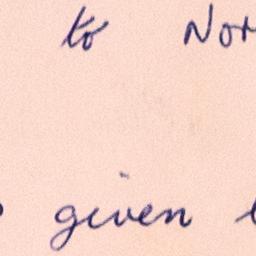 to Nor
given